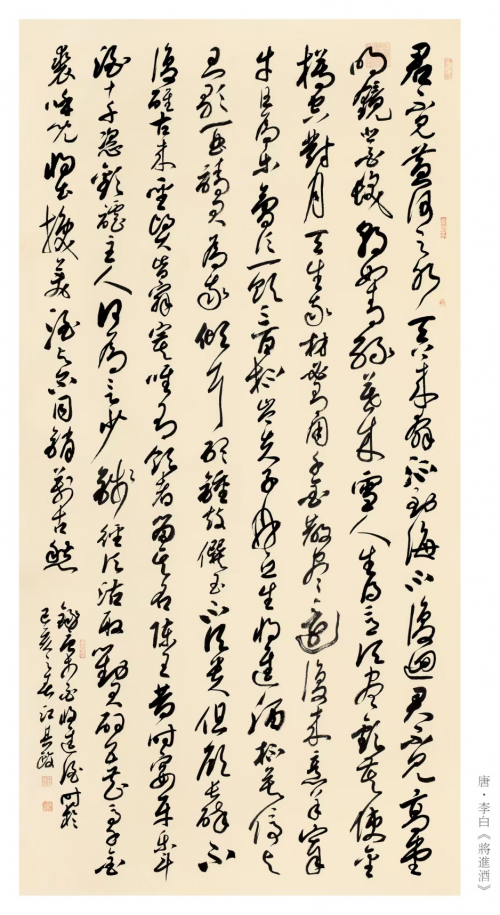 君不見黃河之水天上來奔流到海不復迴君不見高堂
明鏡悲白髮朝如青絲暮成雪人生得意須盡歡莫使金
樽空對月天生我材必有用千金散盡還復來烹羊宰
牛且為樂會須一飲三百杯岑夫子丹丘生將進酒杯莫停與
君歌一曲請君為我傾耳聽鐘鼓饌玉不足貴但願長醉不
復醒古來聖賢皆寂寞唯有飲者留其名陳王昔時宴平樂斗
酒十千恣歡謔主人何為言少錢徑須沽取對君酌五花馬千金
裘呼兒將出換美酒與爾同銷萬古愁
錄唐李白將進酒時於
己亥之春江其
唐·李白《將進酒》